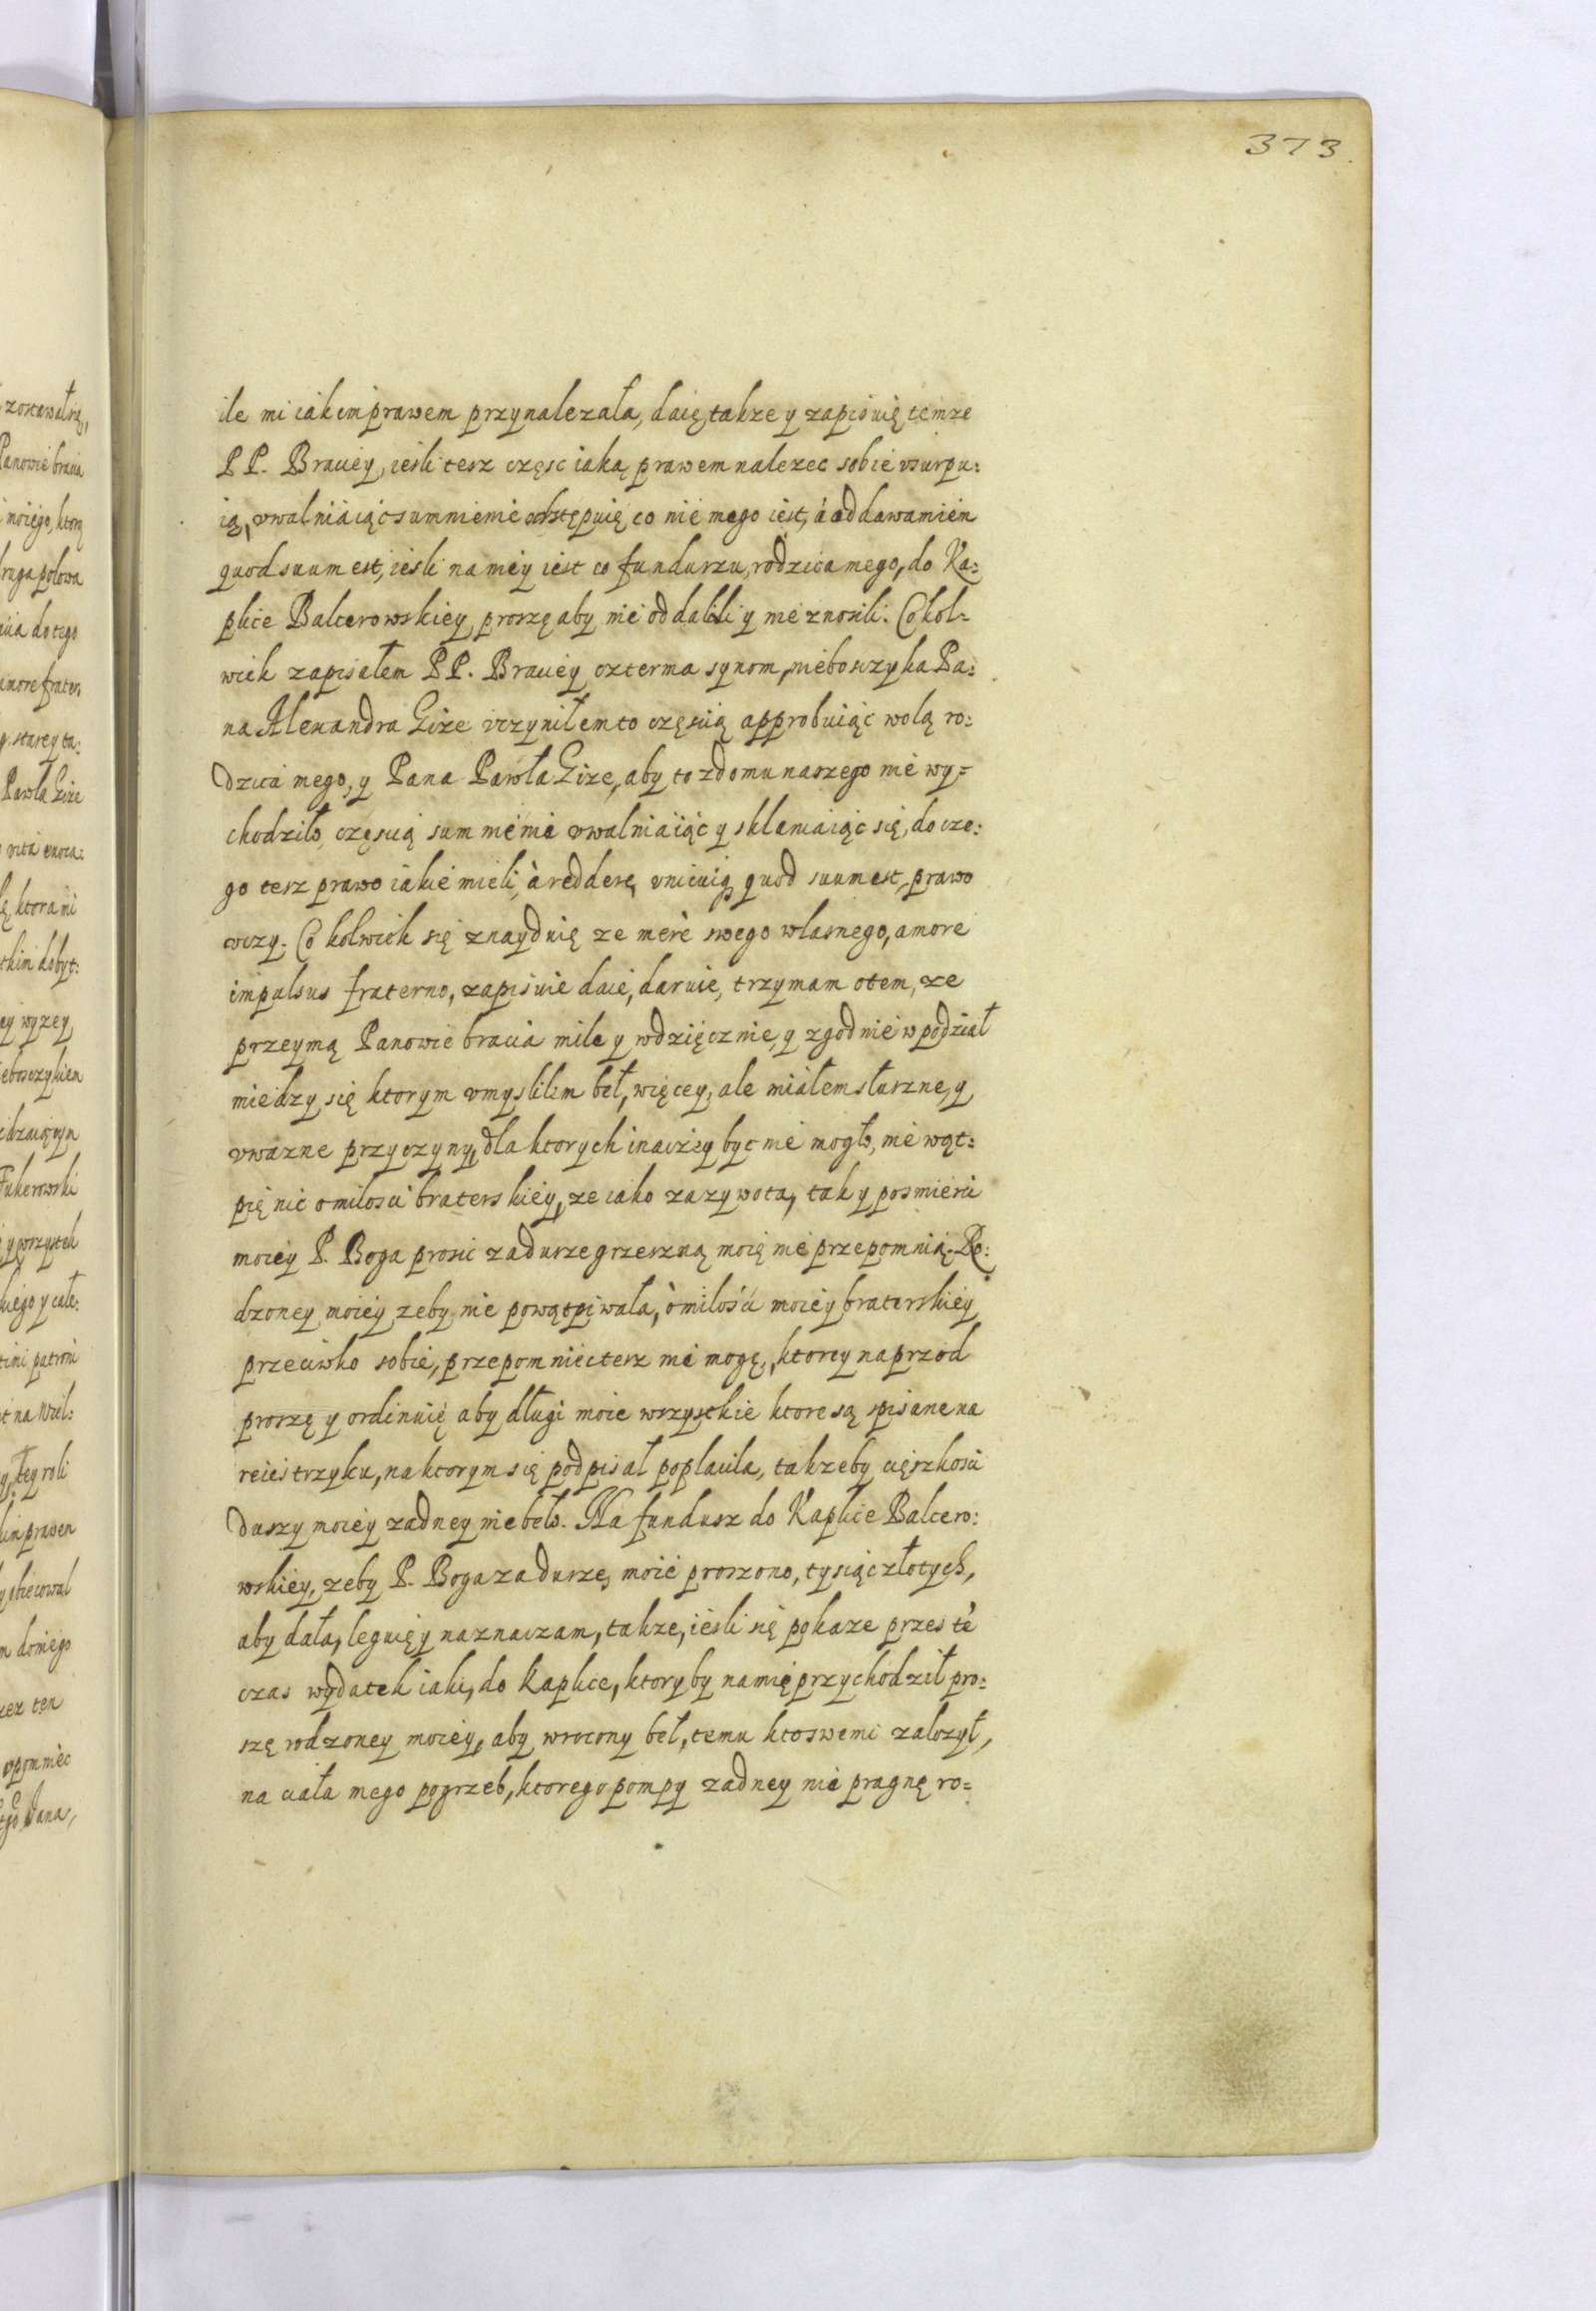 373
ile mi iakim prawem przynalezała, daię takze y zapisuię temze
PP. Braciey, iesli tesz częsc iaką prawem nalezec sobie vsurpu:
ią, vwalniaiąc sumnienie odstępuię co nie mego iest, á oddawam iem
quod suum est, iesli na niey iest co fundurzu, rodzica mego, do Ka:
plice Balcerowskiey, proszę aby nie oddalili y nie znosili. Cokol=
wiek zapisałem PP. Braciey czterma synom, nieboszyka Pa:
na Alexandra Gize vczyniłem to częscią approbuiąc wolą ro:
dzica mego, y Pana Pawła Gize, aby to z domu naszego nie wy=
chodziło, częscią summenie vwalniaiąc y sklaniaiąc się, do cze:
go tesz prawo iakie mieli, à reddere vnicuiq quod suum est, prawo
vczy. Cokolwiek się znayduię ze merè swego wlasnego, amore
impulsus fraterno, zapisuie daie, daruie, trzymam o tem, ze
przeymą Panowie bracia mile y wdzięcznie, y zgodnie w podział
miedzy się ktorym vmyslilem beł, więcey, ale miałem słuszne, y
vwazne przyczyny, dla ktorych inaczey byc nie mogło, nie wąt:
pię nic o milosci braterskiey, ze iako za zywota, tak y po smierci
moiey P. Boga prosic za dusze grzeszną moię nie przepomnią. Ro:
dzoney moiey zeby nie powątpiwała, ò miłości moiey braterskiey
przeciwko sobie, przepomniec tesz nie mogę, ktorey naprzod
proszę y ordinuię aby długi moie wszystkie ktore są spisane na
reiestrzyku, na ktorym się podpisał poplacila, tak zeby cięszkosci
duszy moiey zadney nie beło. Na fundusz do Kaplice Balcero:
wskiey, zeby P. Boga za duszę moię proszono, tysiąc złotych,
aby dała, leguię y naznaczam, takze, iesli się pokaze przes tè
czas wydatek iaki, do kaplice, ktory by na mię przychodził pro:
szę rodzoney moiey, aby wrocony beł, temu kto swemi zalozył,
na ciała mego pogrzeb, ktorego pompy zadney nie pragnę ro=